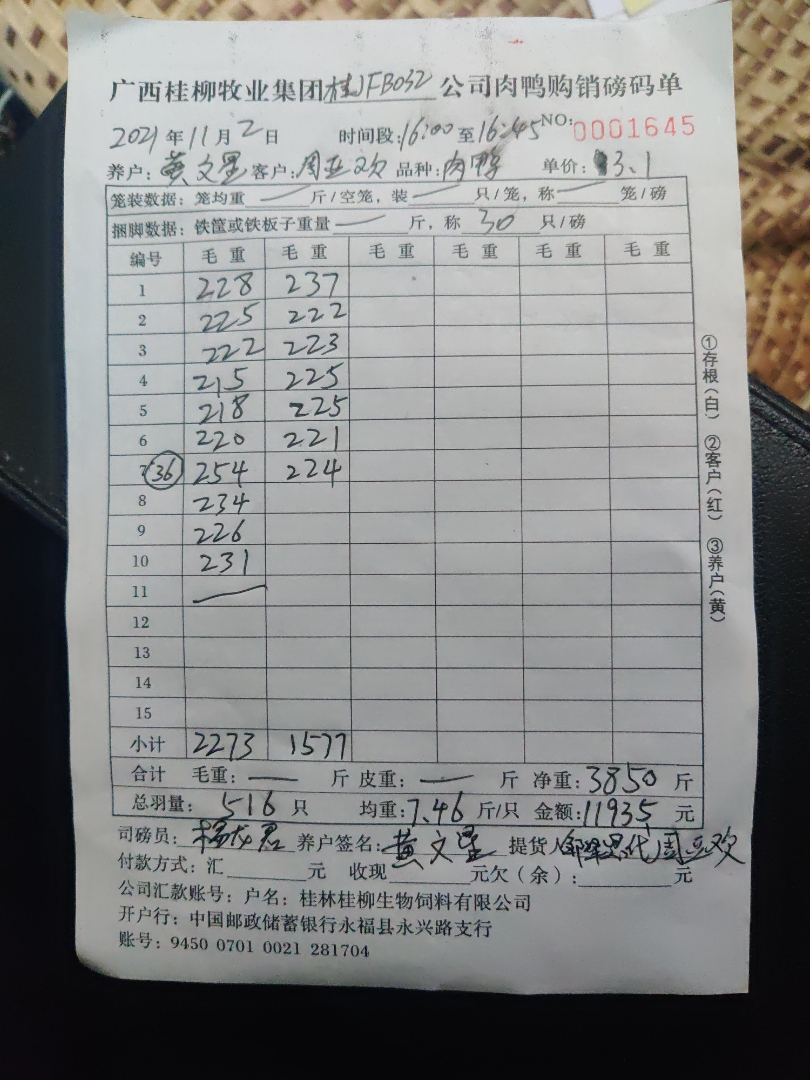 广西桂柳牧业集团桂JFB032公司肉鸭购销磅码单
2021年11月2日 时间段:16:00至16:45 NO:0001645
养户:黄文星 客户:周亚欢 品种:肉鸭 单价:3.1
笼装数据:笼均重 — 斤/空笼,装 — 只/笼,称 — 笼/磅
捆脚数据:铁筐或铁板子重量 — 斤,称 30 只/磅
编号 毛重 毛重 毛重 毛重 毛重 毛重
1 228 237
2 225 222
3 222 223
4 215 225
5 218 225
6 220 221
7 (36) 254 224
8 234
9 226
10 231
11 —
12
13
14
15
小计 2273 1577
合计 毛重: — 斤 皮重: — 斤 净重:3850 斤
总羽量: 516 只 均重:7.46 斤/只 金额:11935 元
司磅员: 杨龙君 养户签名: 黄文星 提货人 代周亚欢
付款方式:汇 元 收现 元欠(余): 元
公司汇款账号:户名:桂林桂柳生物饲料有限公司
开户行:中国邮政储蓄银行永福县永兴路支行
账号:9450 0701 0021 281704
①存根(白) ②客户(红) ③养户(黄)